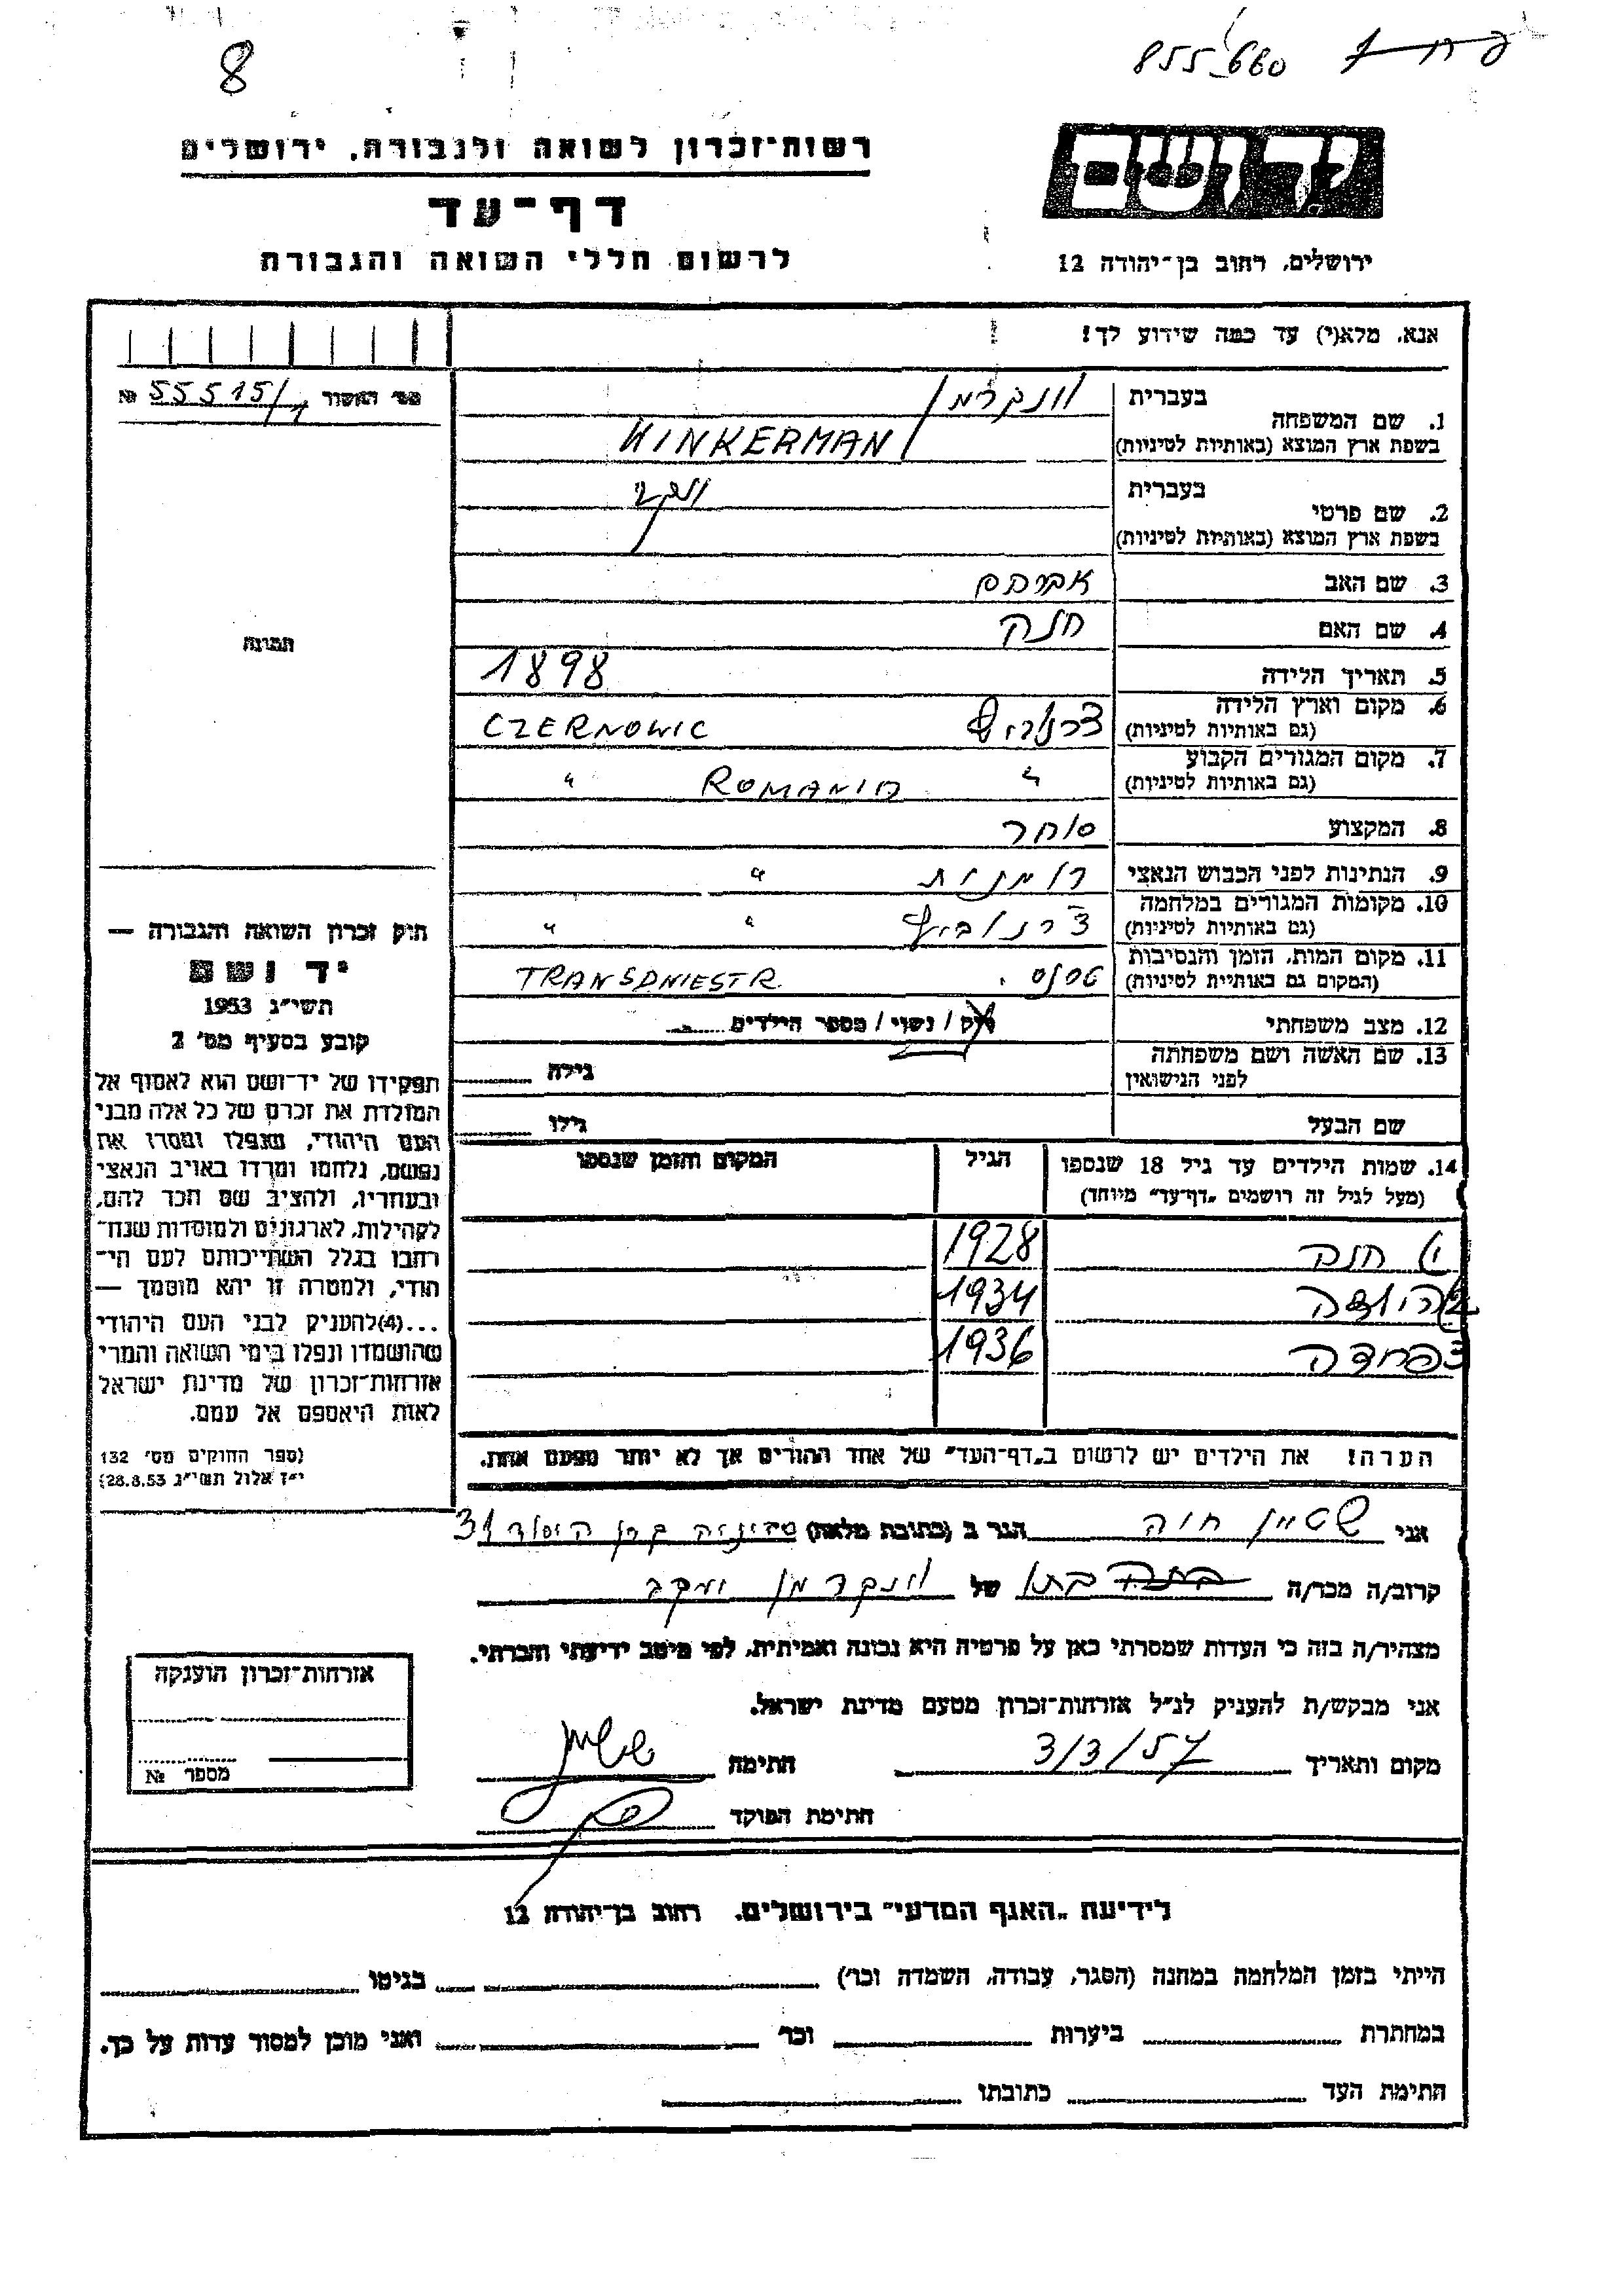 8
855660
רשות־זכרון לשואה ולגבורה. ירושלים
יד ושם
דף־עד
לרשום חללי השואה והגבורה
ירושלים, רחוב בן־יהודה 12
אנא, מלא(י) עד כמה שידוע לך!
מס׳ האשור 55515/1 №
1. שם המשפחה
בעברית וונקרמן
בשפת ארץ המוצא (באותיות לטיניות) WINKERMAN
2. שם פרטי
בעברית יעקב
בשפת ארץ המוצא (באותיות לטיניות)
3. שם האב אברהם
4. שם האם חנה
תמונה
5. תאריך הלידה 1898
6. מקום וארץ הלידה
(גם באותיות לטיניות) צרנוביץ CZERNOWIC
7. מקום המגורים הקבוע
(גם באותיות לטיניות) " ROMANIA "
8. המקצוע סוחר
9. הנתינות לפני הכבוש הנאצי רומנית "
10. מקומות המגורים במלחמה
(גם באותיות לטיניות) צרנוביץ " "
11. מקום המות, הזמן והנסיבות
(המקום גם באותיות לטיניות) TRANSDNIESTR
12. מצב משפחתי רוק / נשוי / מספר הילדים
13. שם האשה ושם משפחתה
לפני הנישואין גילה
שם הבעל גילו
14. שמות הילדים עד גיל 18 שנספו הגיל המקום והזמן שנספו
(מעל לגיל זה רושמים „דף־עד״ מיוחד)
1) חנה 1928
2) יהודה 1934
3 1936
הערה! את הילדים יש לרשום ב„דף־העד״ של אחד ההורים אך לא יותר מפעם אחת.
חוק זכרון השואה והגבורה —
יד ושם
תשי״ג 1953
קובע בסעיף מס׳ 2
תפקידו של יד־ושם הוא לאסוף אל
המולדת את זכרם של כל אלה מבני
העם היהודי, שנפלו ומסרו את
נפשם, נלחמו ומרדו באויב הנאצי
ובעוזריו, ולהציב שם וזכר להם,
לקהילות, לארגונים ולמוסדות שנח־
רבו בגלל השתייכותם לעם הי־
הודי, ולמטרה זו יהא מוסמך —
...(4) להעניק לבני העם היהודי
שהושמדו ונפלו בימי השואה והמרי
אזרחות־זכרון של מדינת ישראל
לאות היאספם אל עמם.
(ספר החוקים מס׳ 132
י״ז אלול תשי״ג 28.8.53)
אני שטיין חוה הגר ב (כתובת מלאה) נתניה קרן היסוד 31
קרוב/ה מכר/ה בתו של וונקרמן יעקב
מצהיר/ה בזה כי העדות שמסרתי כאן על פרטיה היא נכונה ואמיתית, לפי מיטב ידיעתי והכרתי.
אני מבקש/ת להעניק לנ״ל אזרחות־זכרון מטעם מדינת ישראל.
מקום ותאריך 3/3/57 חתימה
חתימת הפוקד
אזרחות־זכרון הוענקה
מספר №
לידיעת „האגף המדעי״ בירושלים. רחוב בן־יהודה 12
הייתי בזמן המלחמה במחנה (הסגר, עבודה, השמדה וכו׳) בגיטו
במחתרת ביערות וכו׳ ואני מוכן למסור עדות על כך.
חתימת העד כתובתו